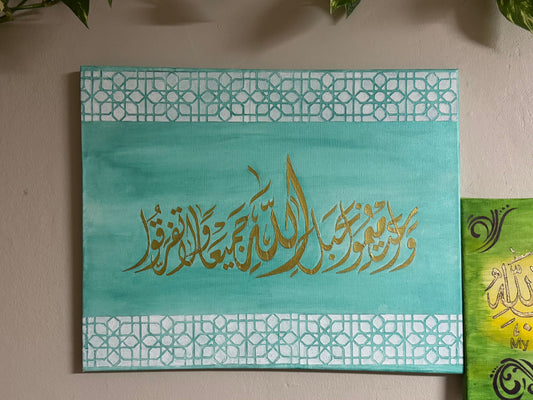 واعتصموا بحبل الله جميعا ولا تفرقوا
الله
My